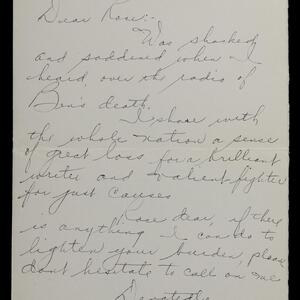 Dear Rose:-
Was shocked
and saddened when I
heard over the radio of
Ben's death.
I share with
the whole nation a sense
of great loss for a brilliant
writer and valient fighter
for just causes
Rose dear, if there
is anything I can do to
lighten your burden, please
dont hesitate to call on me
Devotedly